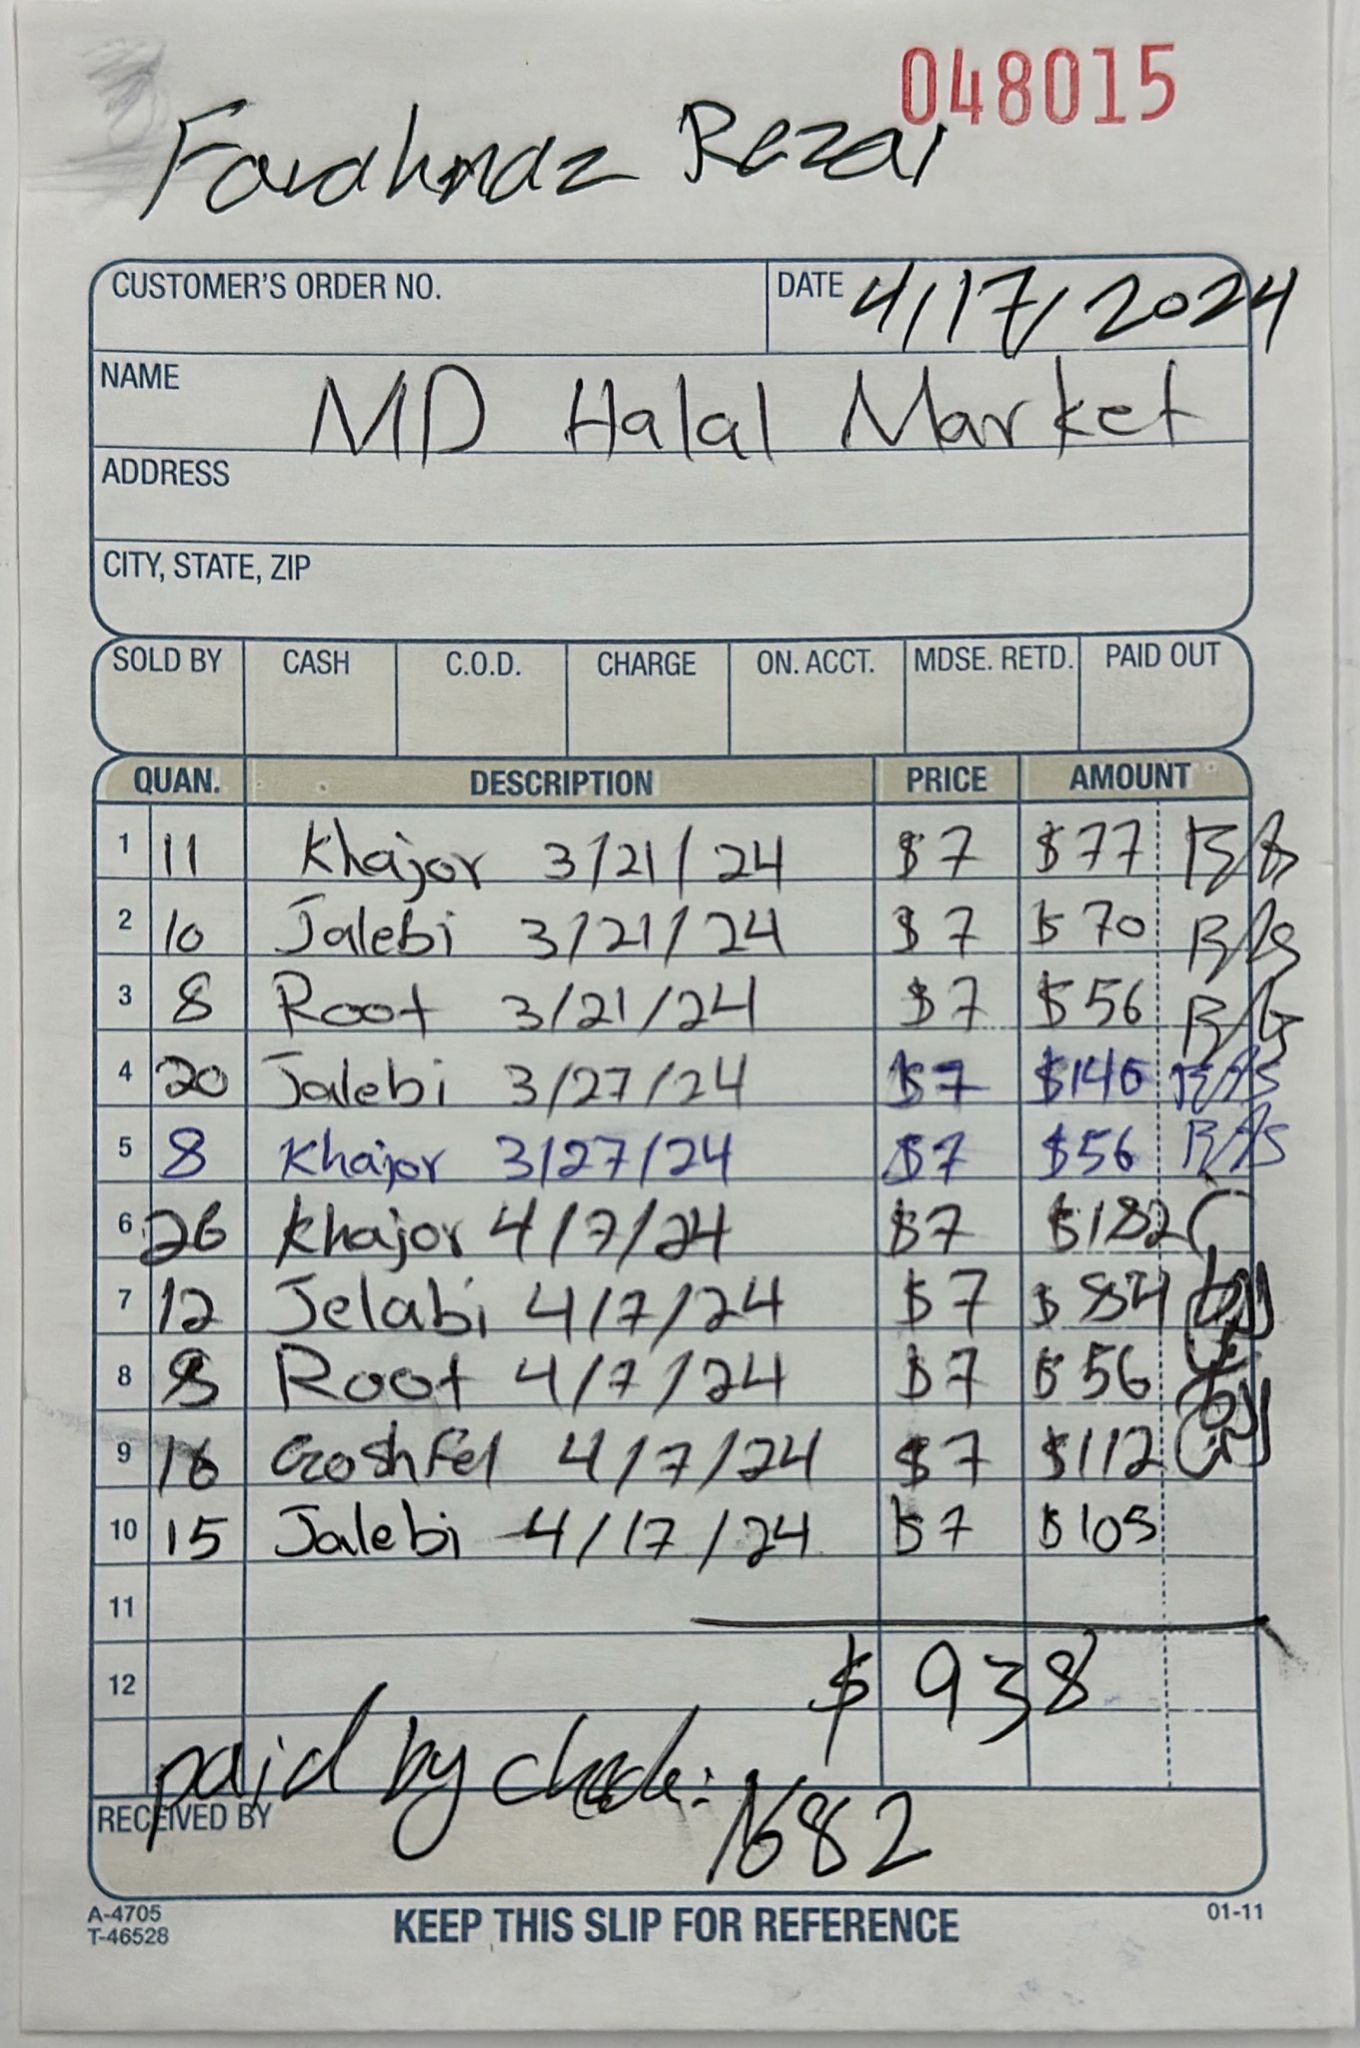 048015
Farahnaz Rezai
CUSTOMER'S ORDER NO. DATE 4/17/2024
NAME MD Halal Market
ADDRESS
CITY, STATE, ZIP
SOLD BY CASH C.O.D. CHARGE ON. ACCT. MDSE. RETD. PAID OUT
QUAN. DESCRIPTION PRICE AMOUNT
1 11 Khajor 3/21/24 $7 $77
2 10 Jalebi 3/21/24 $7 $70
3 8 Root 3/21/24 $7 $56
4 20 Jalebi 3/27/24 $7 $140
5 8 Khajor 3/27/24 $7 $56
6 26 Khajor 4/7/24 $7 $182
7 12 Jelabi 4/7/24 $7 $84
8 8 Root 4/7/24 $7 $56
9 16 GoshFel 4/7/24 $7 $112
10 15 Jalebi 4/17/24 $7 $105
11
12 $938
paid by check: 1682
RECEIVED BY
A-4705
T-46528
KEEP THIS SLIP FOR REFERENCE
01-11